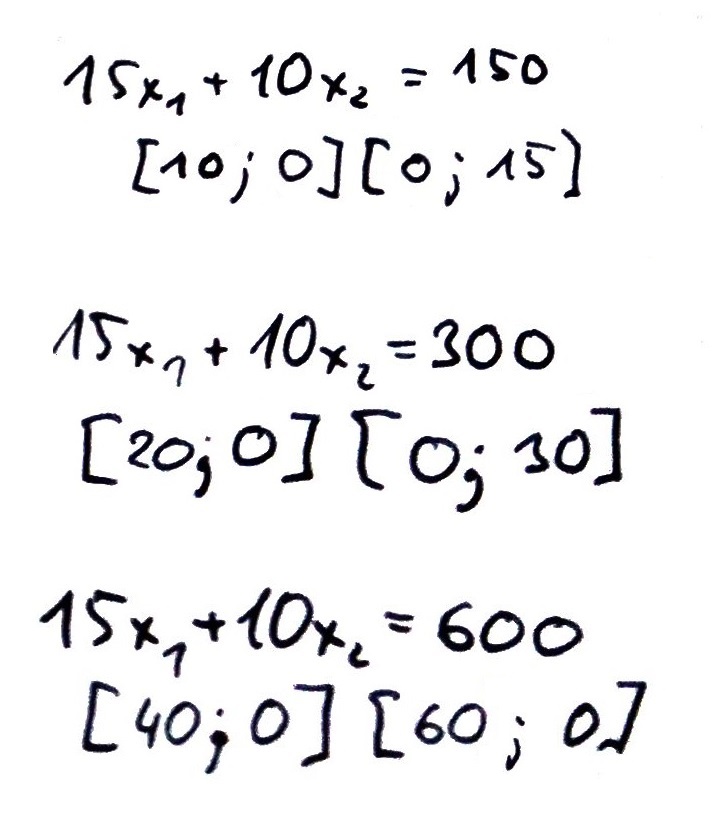 15x₁ + 10x₂ = 150
[10; 0] [0; 15]
15x₁ + 10x₂ = 300
[20; 0] [0; 30]
15x₁ + 10x₂ = 600
[40; 0] [60; 0]